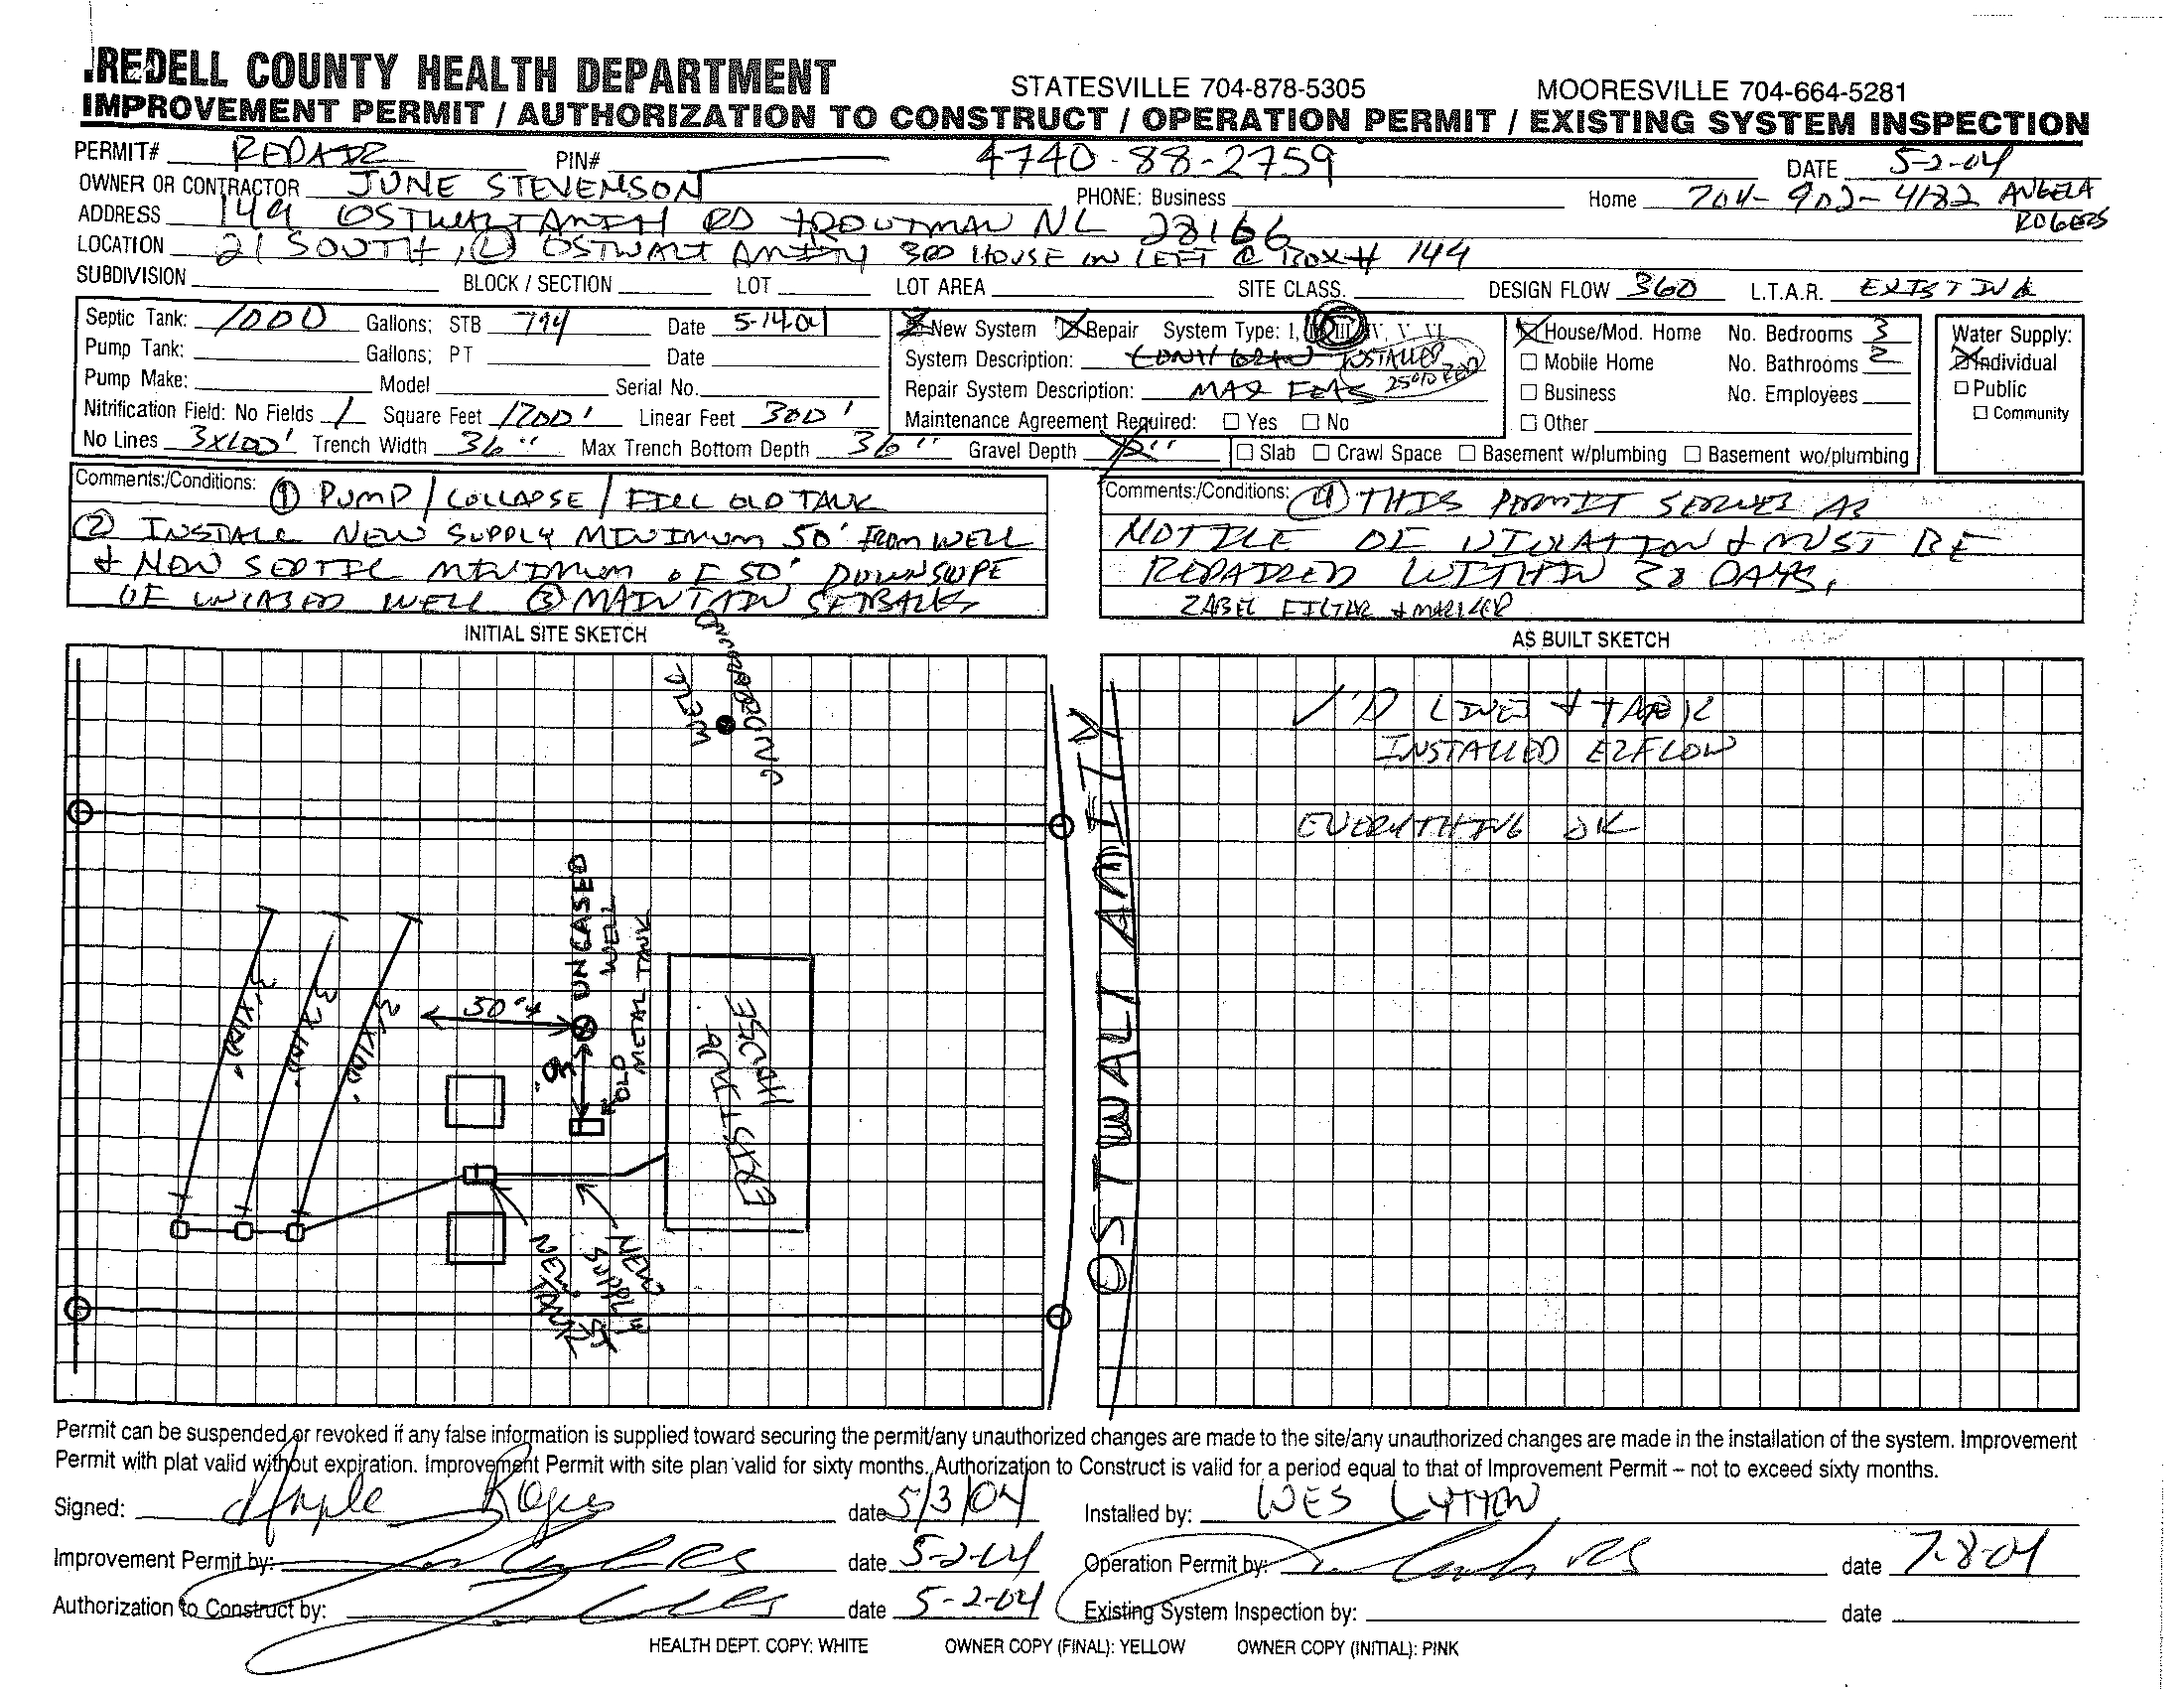 IREDELL COUNTY HEALTH DEPARTMENT STATESVILLE 704-878-5305 MOORESVILLE 704-664-5281
IMPROVEMENT PERMIT / AUTHORIZATION TO CONSTRUCT / OPERATION PERMIT / EXISTING SYSTEM INSPECTION
PERMIT# REPAIR PIN# 4740-88-2759 DATE 5-2-04
OWNER OR CONTRACTOR JUNE STEVENSON PHONE: Business Home 704-902-4182 ANGELA ROGERS
ADDRESS 149 OSTWALT AMITY RD TROUTMAN NC 28166
LOCATION 21 SOUTH, (L) OSTWALT AMITY 3RD HOUSE ON LEFT @ BOX # 144
SUBDIVISION BLOCK / SECTION LOT LOT AREA SITE CLASS. DESIGN FLOW 360 L.T.A.R. EXISTING
Septic Tank: 1000 Gallons; STB 794 Date 5-14-04
Pump Tank: Gallons; PT Date
Pump Make: Model Serial No.
Nitrification Field: No Fields 1 Square Feet 1200' Linear Feet 300'
No Lines 3X100' Trench Width 36" Max Trench Bottom Depth 36" Gravel Depth
New System Repair System Type: I, II, III, IV, V, VI
System Description: CONV GRAV INSTALLED 25% RED
Repair System Description: MAR
Maintenance Agreement Required: Yes No
House/Mod. Home No. Bedrooms 3
Mobile Home No. Bathrooms 2
Business No. Employees
Other
Slab Crawl Space Basement w/plumbing Basement wo/plumbing
Water Supply:
Individual
Public
Community
Comments:/Conditions: ① PUMP / COLLAPSE / FILL OLD TANK
② INSTALL NEW SUPPLY MINIMUM 50' FROM WELL
+ NEW SEPTIC MINIMUM OF 50' DOWNSLOPE
OF UNCASED WELL ③ MAINTAIN SETBACKS
Comments:/Conditions: ④ THIS PERMIT SERVES AS
NOTICE OF VIOLATION & MUST BE
REPAIRED WITHIN 30 DAYS.
ZABEL FILTER + MARKER
INITIAL SITE SKETCH
NEIGHBORING
WELL
UNCASED
WELL
OLD
METAL TANK
50'+
3'X100'
3'X100'
3'X100'
EXISTING
HOUSE
NEW
TANK
NEW
SUPPLY
OSTWALT AMITY
AS BUILT SKETCH
✓'D LINES + TANK
INSTALLED EZFLOW
EVERYTHING OK
Permit can be suspended or revoked if any false information is supplied toward securing the permit/any unauthorized changes are made to the site/any unauthorized changes are made in the installation of the system. Improvement
Permit with plat valid without expiration. Improvement Permit with site plan valid for sixty months. Authorization to Construct is valid for a period equal to that of Improvement Permit – not to exceed sixty months.
Signed: date 5/3/04 Installed by: WES LYTTON
Improvement Permit by: date 5-2-04 Operation Permit by: date 7-8-04
Authorization to Construct by: date 5-2-04 Existing System Inspection by: date
HEALTH DEPT. COPY: WHITE OWNER COPY (FINAL): YELLOW OWNER COPY (INITIAL): PINK